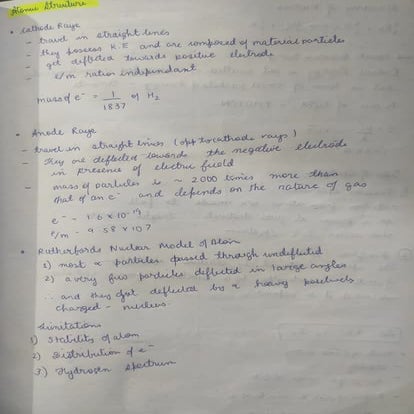 Atomic Structure
• Cathode Rays
- travel in straight lines
- they possess K.E and are composed of material particles
- get deflected towards positive electrode
e/m ratio independant
mass of e⁻ = 1/1837 of H₂
• Anode Rays
- travel in straight lines (opp to cathode rays)
- They are deflected towards the negative electrode
in presence of electric field
- mass of particles is ~ 2000 times more than
that of an e⁻ and depends on the nature of gas
e⁻ = 1.6 x 10⁻¹⁹
e/m = 9.58 x 10⁷
• Rutherfords Nuclear Model of Atom
1) most α particles passed through undeflected
2) a very few particles deflected in large angles
∴ and they got deflected by a heavy positively
charged - nucleus.
Limitations
1) Stability of atom
2) Distribution of e⁻
3) Hydrogen Spectrum